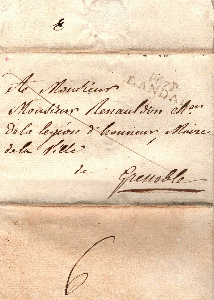 A Monsieur
Monsieur Renauldon M.
de la legion d'honneur, Maire
de la Ville
de
Grenoble
LANDAU
6